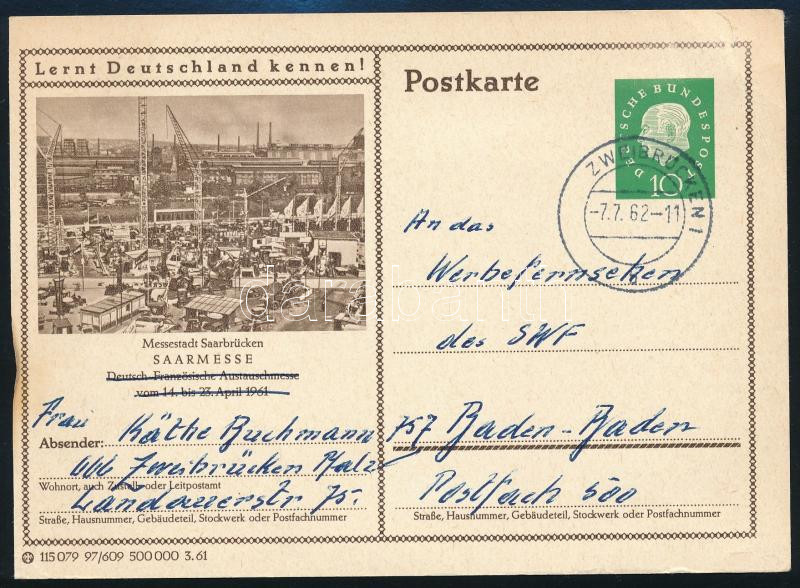 Lernt Deutschland kennen!
Messestadt Saarbrücken
SAARMESSE
Deutsch-Französische Austauschmesse
vom 14. bis 23. April 1961
Frau
Absender: Käthe Buchmann
666 Zweibrücken Pfalz
Wohnort, auch Zustell- oder Leitpostamt
Landauerstr 75.
Straße, Hausnummer, Gebäudeteil, Stockwerk oder Postfachnummer
115 079 97/609 500 000 3.61
Postkarte
DEUTSCHE BUNDESPOST
10
ZWEIBRÜCKEN 1
-7.7.62-11
An das
Werbefernsehen
des SWF
757 Baden-Baden
Postfach 500
Straße, Hausnummer, Gebäudeteil, Stockwerk oder Postfachnummer
darabanth